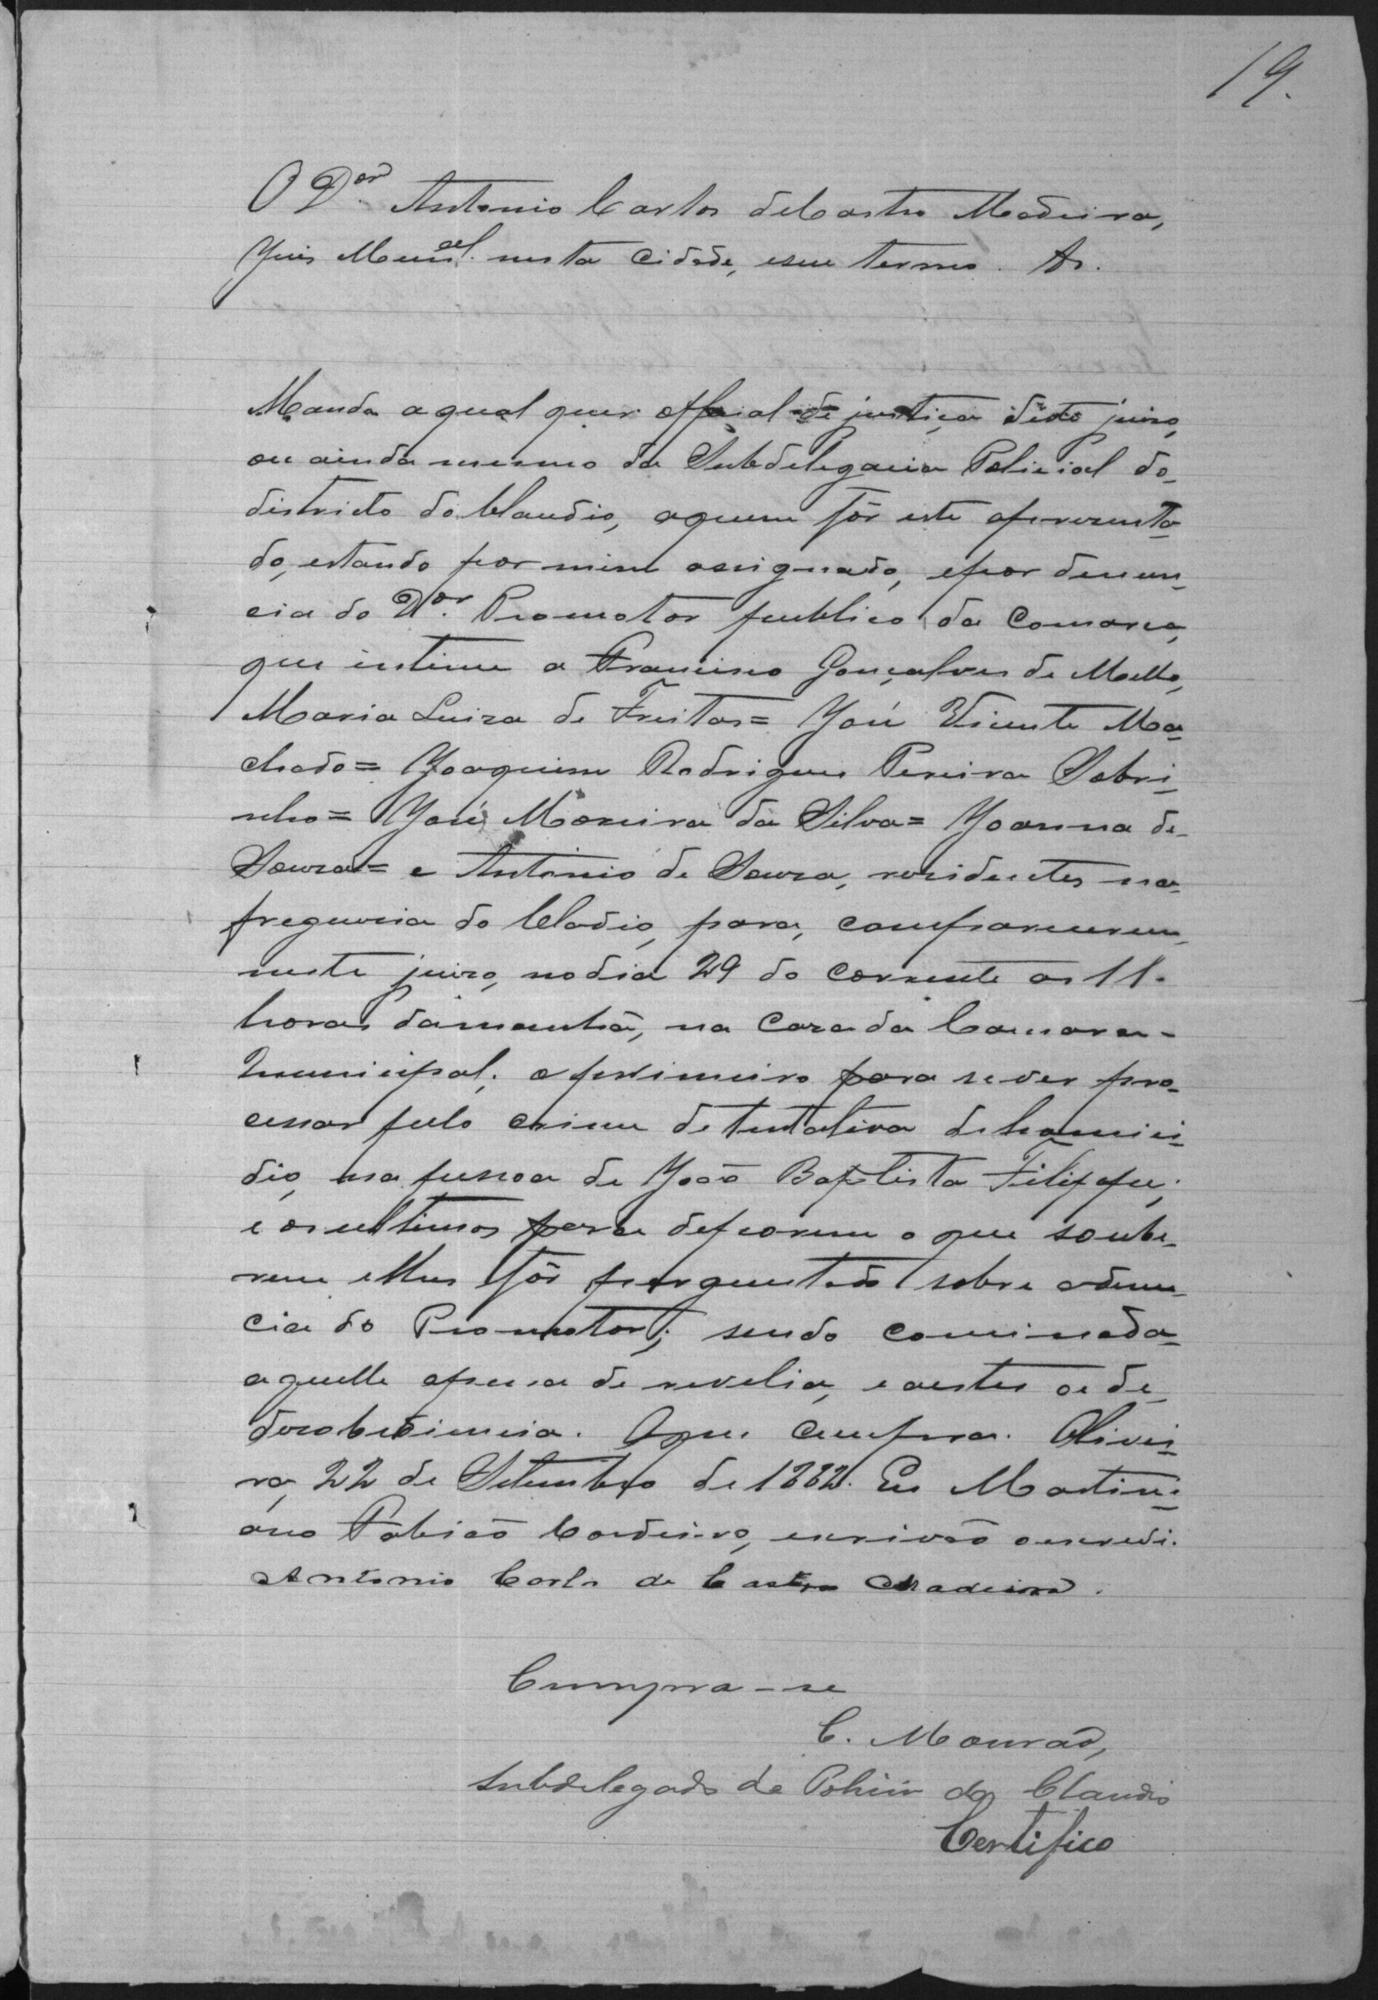 19.
O Dor. Antonio Carlos de Castro Madeira,
Juis Muncal. nesta cidade, e seu termo. &.
Manda a qual quer official de justiça deste juizo,
ou ainda mesmo da Subdelegacia Policial do
districto do Claudio, a quem fôr este apresenta
do, estando por mim assignado, e por denun-
cia do Dor. Promotor publico da Comarca,
que intime a Francisco Gonçalves de Mello,
Maria Luiza de Freitas= José Vicente Ma
chado= Joaquim Rodrigues Pereira Sobri-
nho= José Moreira da Silva= Joanna de
Souza= e Antonio de Souza, residentes na
freguesia do Cladio, para, comparecerem
neste juizo, no dia 29 do corrente as 11.
horas da manhã, na caza da Camara-
Municipal; o primeiro para se ver pro-
cessar pelo crime de tentativa de homici-
dio, na pessoa de João Baptista Filippe;
e os ultimos para deporem o que soube-
rem e lhes fôr perguntado sobre a denun-
cia do Promotor; sendo cominada
aquelle a pena de revelia, e a estes a de
desobediencia. O que cumpra. Olivei-
ra, 22 de Setembro de 1882. Eu Martini-
ano Fabião Cordeiro, escrivão o escrevi.
Antonio Carlos de Castro Madeira.
Cumpra-se
C. Mourão,
Subdelegado de Policia do Claudio
Certifico